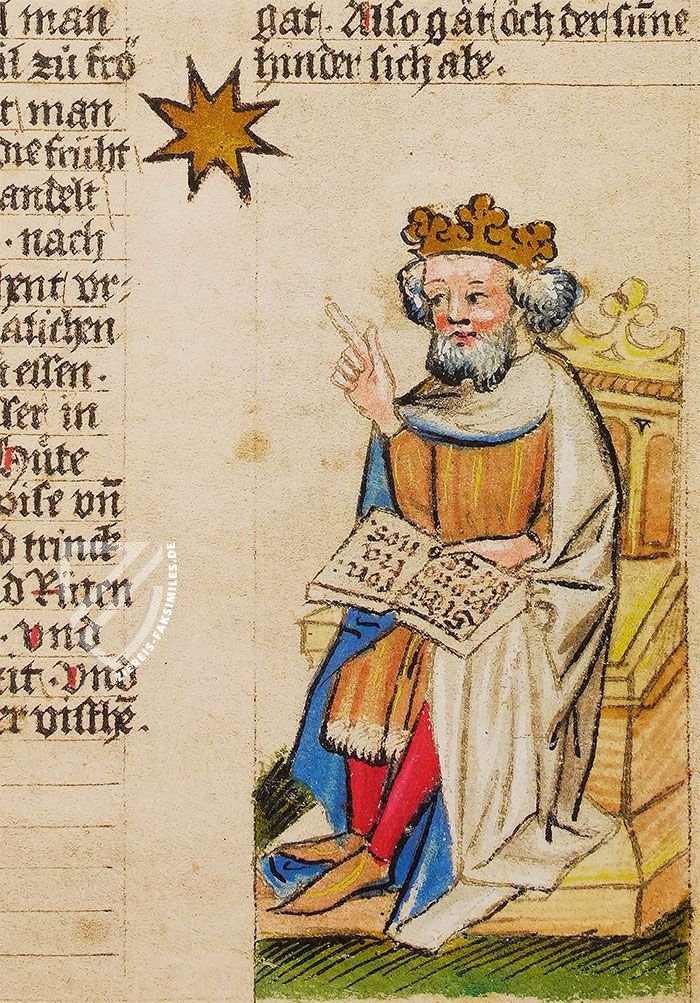 l man
zů frö
t man
die früht
andelt
. nach
hent vr-
atlichen
essen.
ser in
Hüte
wise vñ
d trinck
d Ritten
. vnd
eit. Vnd
er visthē.
gat. Also gät och der sunne
hinder sich abe.
ZIEREIS-FAKSIMILES.DE